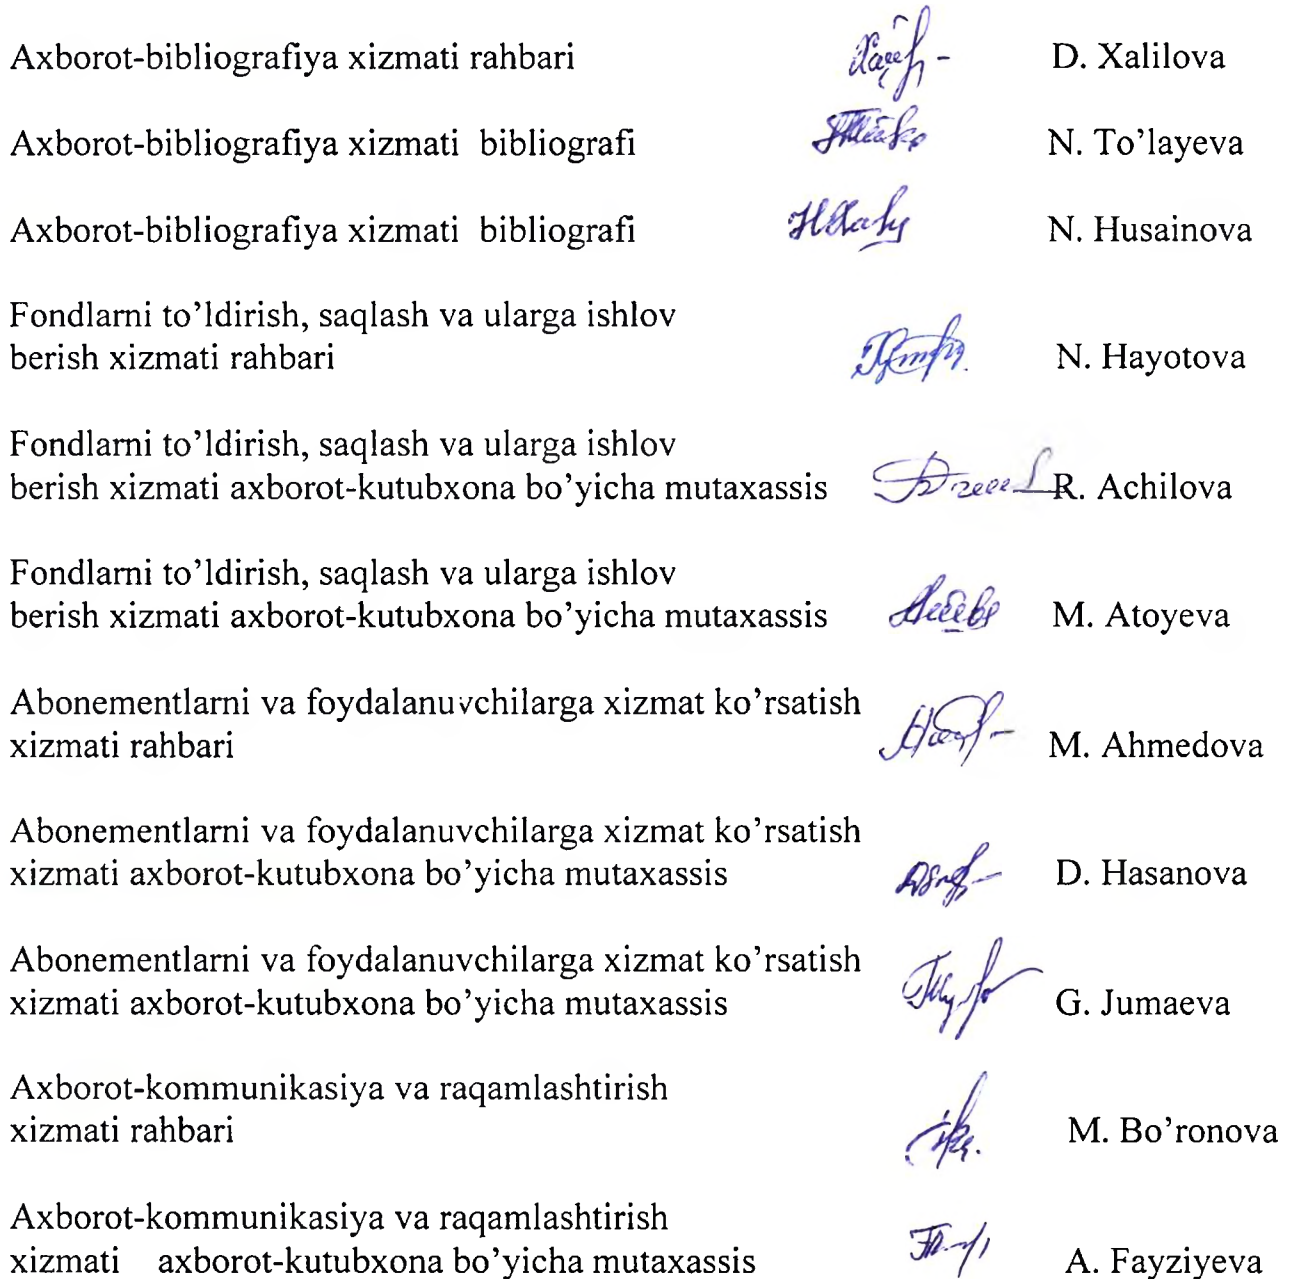 Axborot-bibliografiya xizmati rahbari D. Xalilova
Axborot-bibliografiya xizmati bibliografi N. To’layeva
Axborot-bibliografiya xizmati bibliografi N. Husainova
Fondlarni to’ldirish, saqlash va ularga ishlov
berish xizmati rahbari N. Hayotova
Fondlarni to’ldirish, saqlash va ularga ishlov
berish xizmati axborot-kutubxona bo’yicha mutaxassis R. Achilova
Fondlarni to’ldirish, saqlash va ularga ishlov
berish xizmati axborot-kutubxona bo’yicha mutaxassis M. Atoyeva
Abonementlarni va foydalanuvchilarga xizmat ko’rsatish
xizmati rahbari M. Ahmedova
Abonementlarni va foydalanuvchilarga xizmat ko’rsatish
xizmati axborot-kutubxona bo’yicha mutaxassis D. Hasanova
Abonementlarni va foydalanuvchilarga xizmat ko’rsatish
xizmati axborot-kutubxona bo’yicha mutaxassis G. Jumaeva
Axborot-kommunikasiya va raqamlashtirish
xizmati rahbari M. Bo’ronova
Axborot-kommunikasiya va raqamlashtirish
xizmati axborot-kutubxona bo’yicha mutaxassis A. Fayziyeva